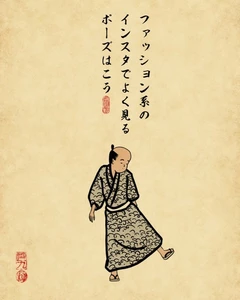 ファッション系の
インスタでよく見る
ポーズはこう